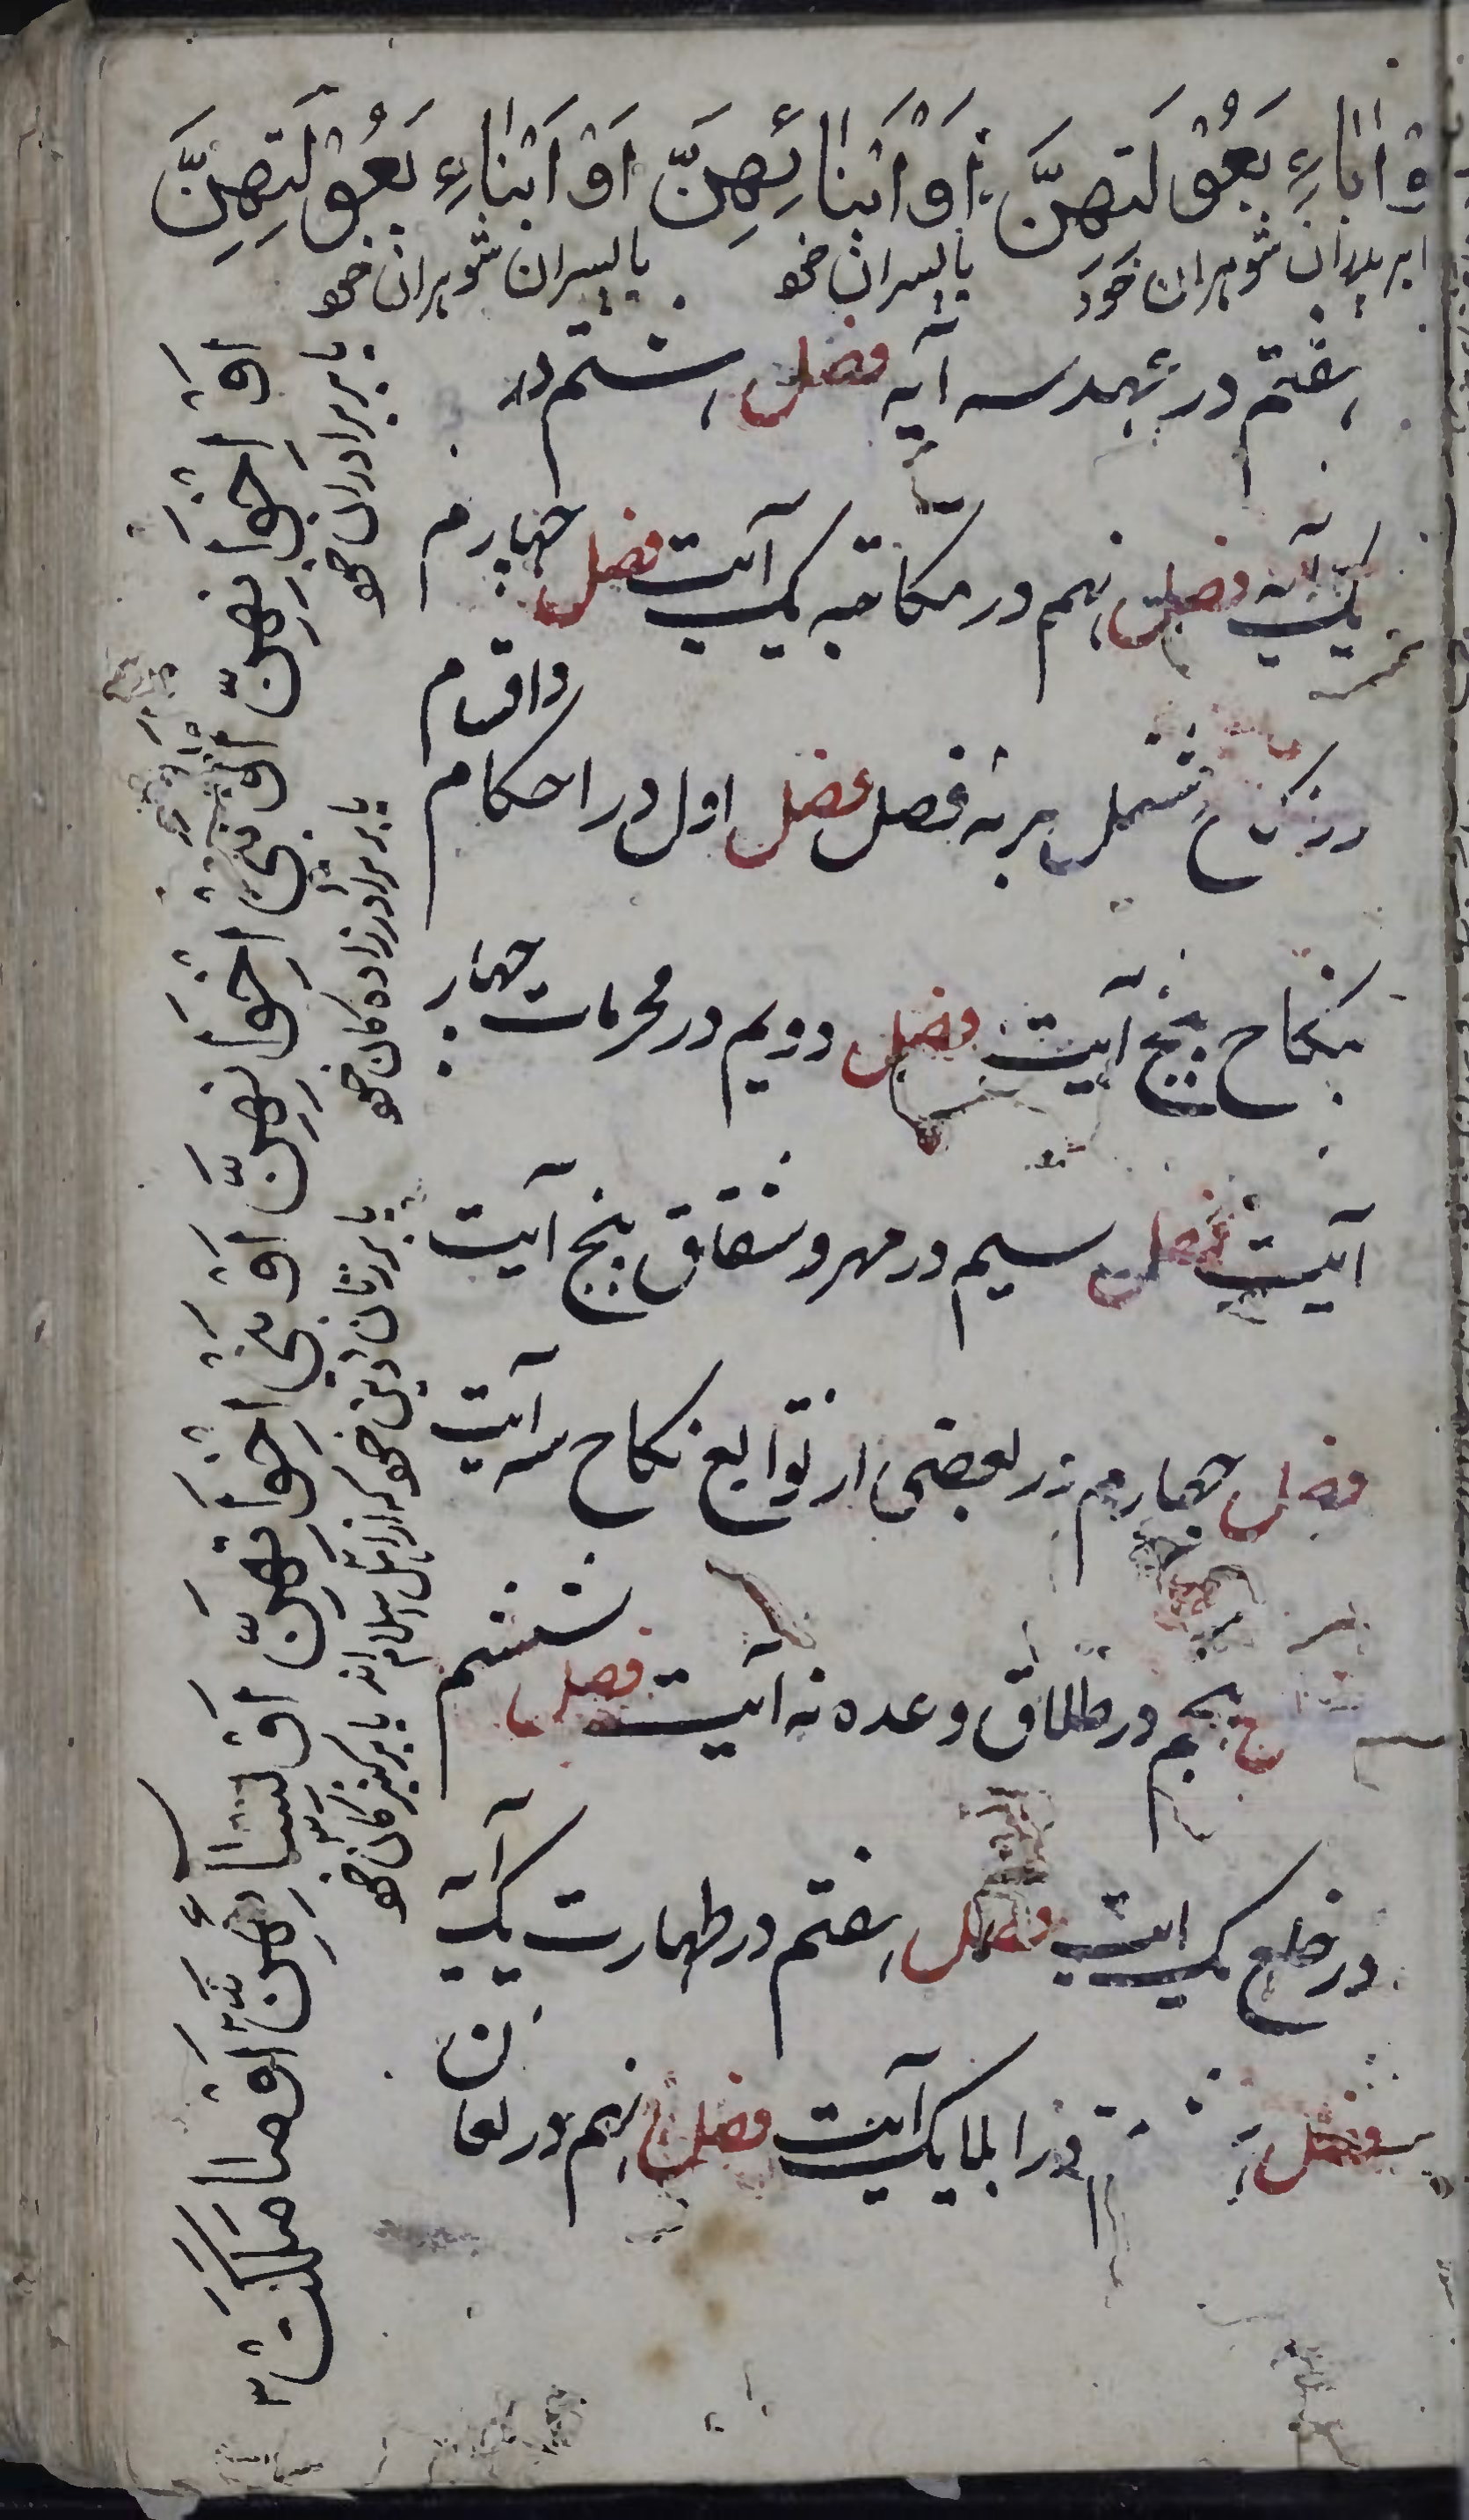 وْ اٰبَاءِ بُعُوْلَتِهِنَّ اَوْ اَبْنَائِهِنَّ اَوْ اَبْنَاءِ بُعُوْلَتِهِنَّ
شوهران خود یا پسران خو یا پسران شوهران خو
هفتم در عهد سه آیه فصل هشتم در
یک آیه فصل نهم در مکاتبه یک آیت فصل چهارم
در نکاح مشتمل بر نه فصل فصل اول در احکام
واقسام
نکاح پنج آیت فصل دویم در محرمات چهار
آیت فصل سیم در مهر و شقاق پنج آیت
فصل چهارم در بعضی از توابع نکاح سه آیت
پنجم در طلاق و عده نه آیت فصل ششم
در خلع یک آیت فصل هفتم در ظهارت یک آیت
فصل در ایلا یک آیت فصل نهم در لعا
ن
اَوْ اِخْوَانِهِنَّ اَوْ بَنِيْ اِخْوَانِهِنَّ اَوْ بَنِيْ اَخَوَاتِهِنَّ اَوْ نِسَائِهِنَّ اَوْ مَا مَلَكَتْ
یا بر برادران خو
یا بر برادرزاده کان خو
یا بر زنان دین خو که از اهل اسلام اند یا بر کنیزکان خو